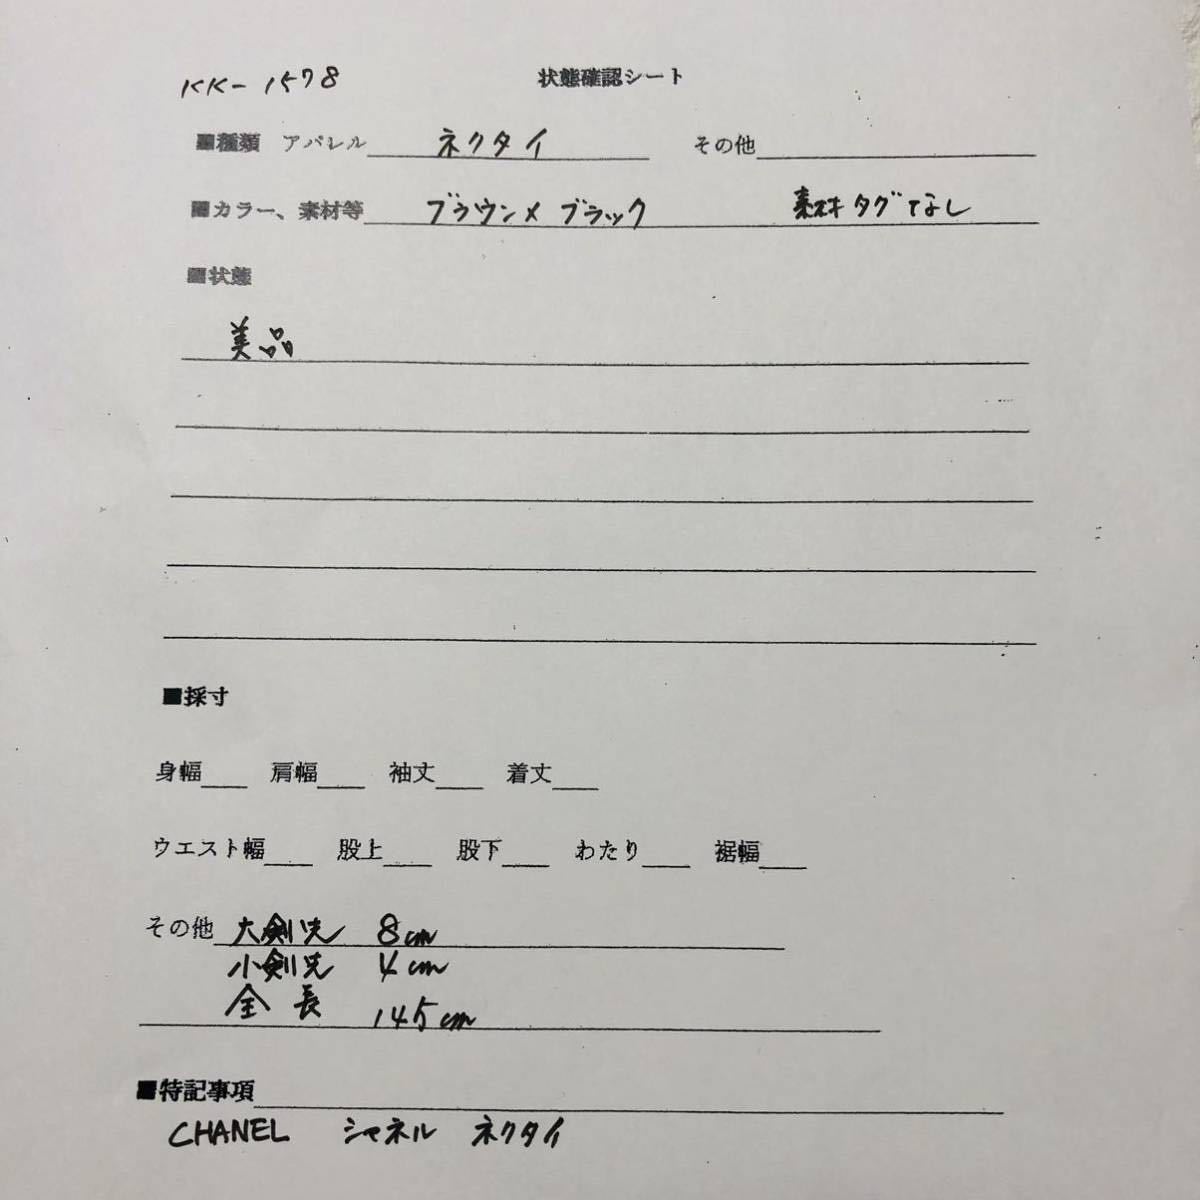 KK-1578 状態確認シート
■種類 アパレル ネクタイ その他
■カラー、素材等 ブラウン× ブラック 素材タグなし
■状態
美品
■採寸
身幅 肩幅 袖丈 着丈
ウエスト幅 股上 股下 わたり 裾幅
その他 大剣先 8cm
小剣先 4cm
全長 145cm
■特記事項
CHANEL シャネル ネクタイ